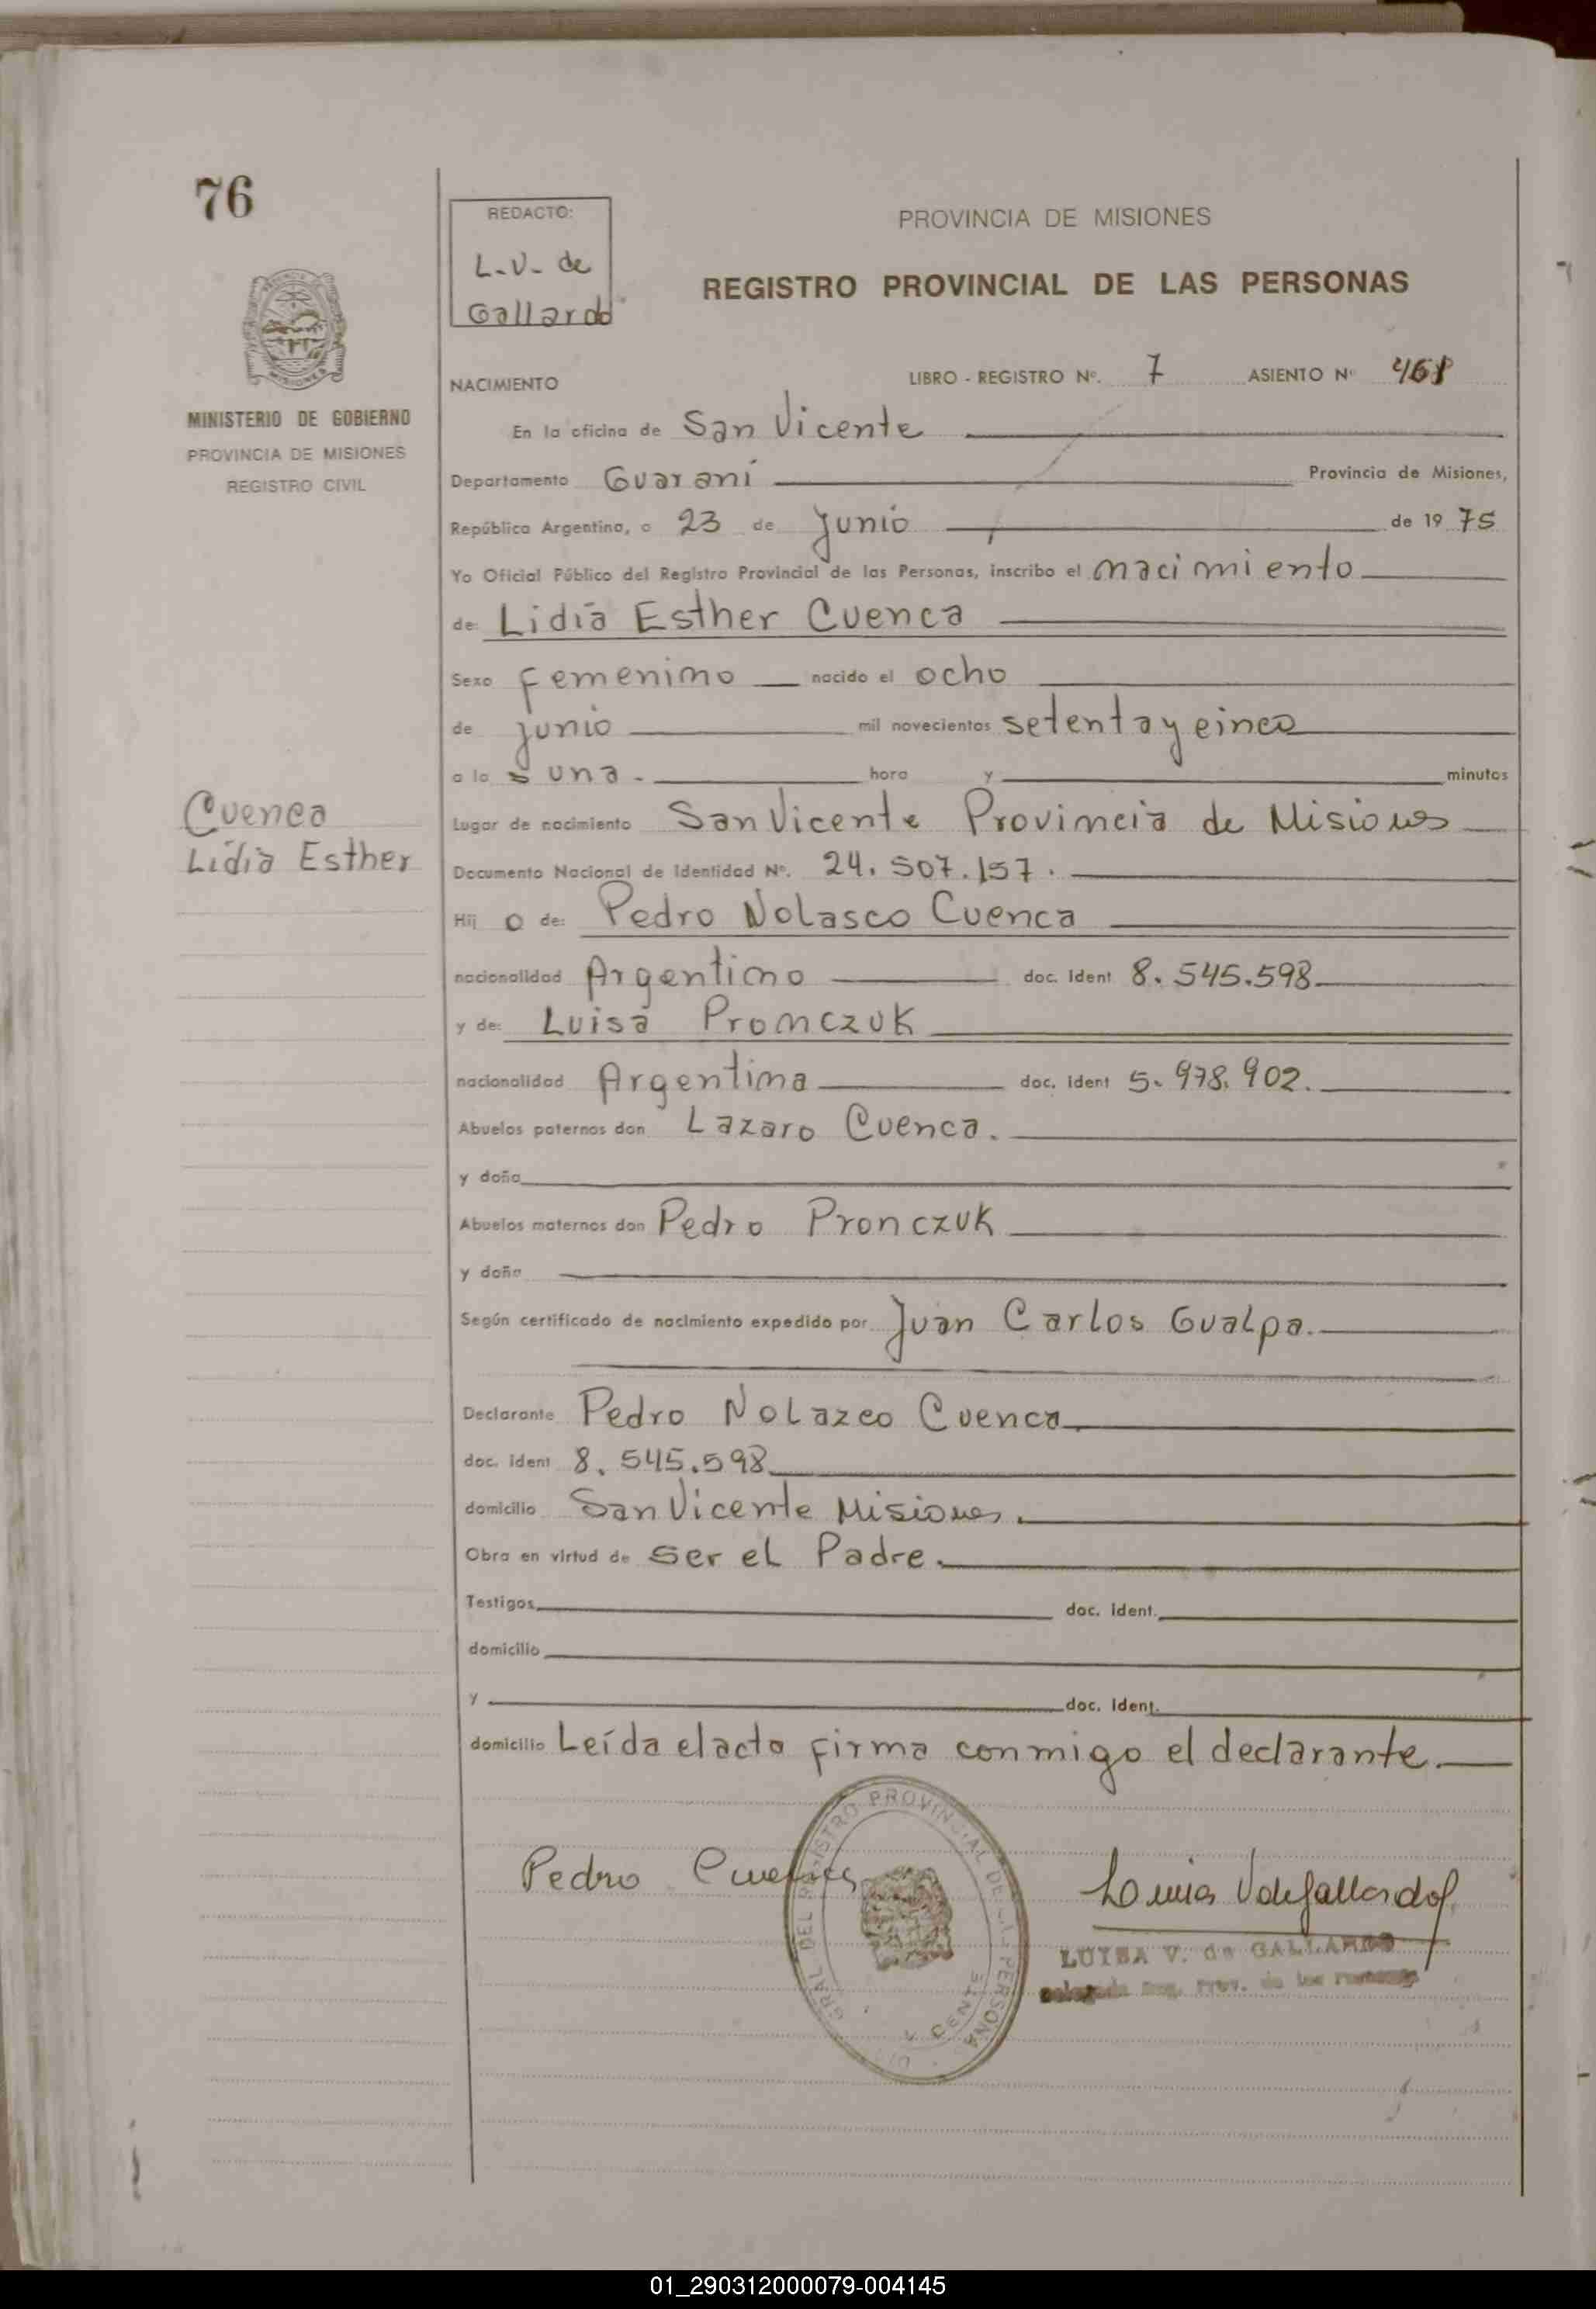 76
REDACTO:
L.V. de
Gallardo
PROVINCIA DE MISIONES
REGISTRO PROVINCIAL DE LAS PERSONAS
MISIONES
MINISTERIO DE GOBIERNO
PROVINCIA DE MISIONES
REGISTRO CIVIL
NACIMIENTO
LIBRO - REGISTRO Nº. 7 ASIENTO Nº 468
En la oficina de San Vicente
Departamento Guaraní Provincia de Misiones,
República Argentina, a 23 de Junio de 19 75
Yo Oficial Público del Registro Provincial de las Personas, inscribo el nacimiento
de: Lidia Esther Cuenca
Sexo Femenino nacido el ocho
de junio mil novecientos setenta y cinco
a la s una. hora y minutos
Cuenca
Lidia Esther
Lugar de nacimiento San Vicente Provincia de Misiones
Documento Nacional de Identidad Nº. 24.507.157.
Hij o de: Pedro Nolasco Cuenca
nacionalidad Argentino doc. ident 8.545.598
y de: Luisa Pronczuk
nacionalidad Argentina doc. ident 5.978.902.
Abuelos paternos don Lazaro Cuenca.
y doña
Abuelos maternos don Pedro Pronczuk
y doña
Según certificado de nacimiento expedido por Juan Carlos Gualpa.
Declarante Pedro Nolazco Cuenca
doc. ident 8.545.598
domicilio San Vicente Misiones.
Obra en virtud de ser el Padre.
Testigos doc. ident.
domicilio
y doc. ident.
domicilio Leída el acto firma conmigo el declarante.
Pedro Cuenca
GRAL DEL REGISTRO PROVINCIAL DE LAS PERSONAS
Luisa V de Gallardo
LUISA V. de GALLARDO
01_290312000079-004145